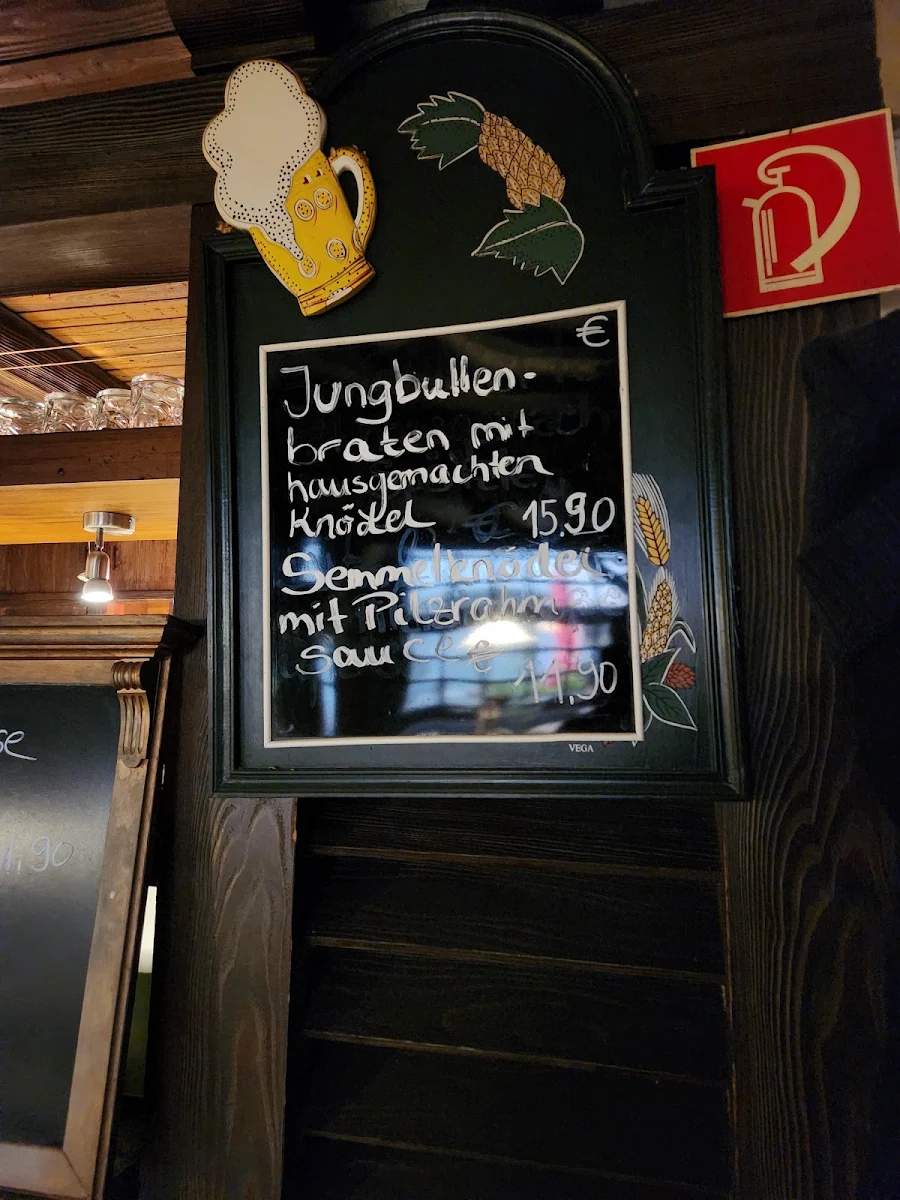 €
Jungbullen-
braten mit
hausgemachten
Knödel 15.90
Semmelknödel
mit Pilzrahm
sauce
11.90
VEGA